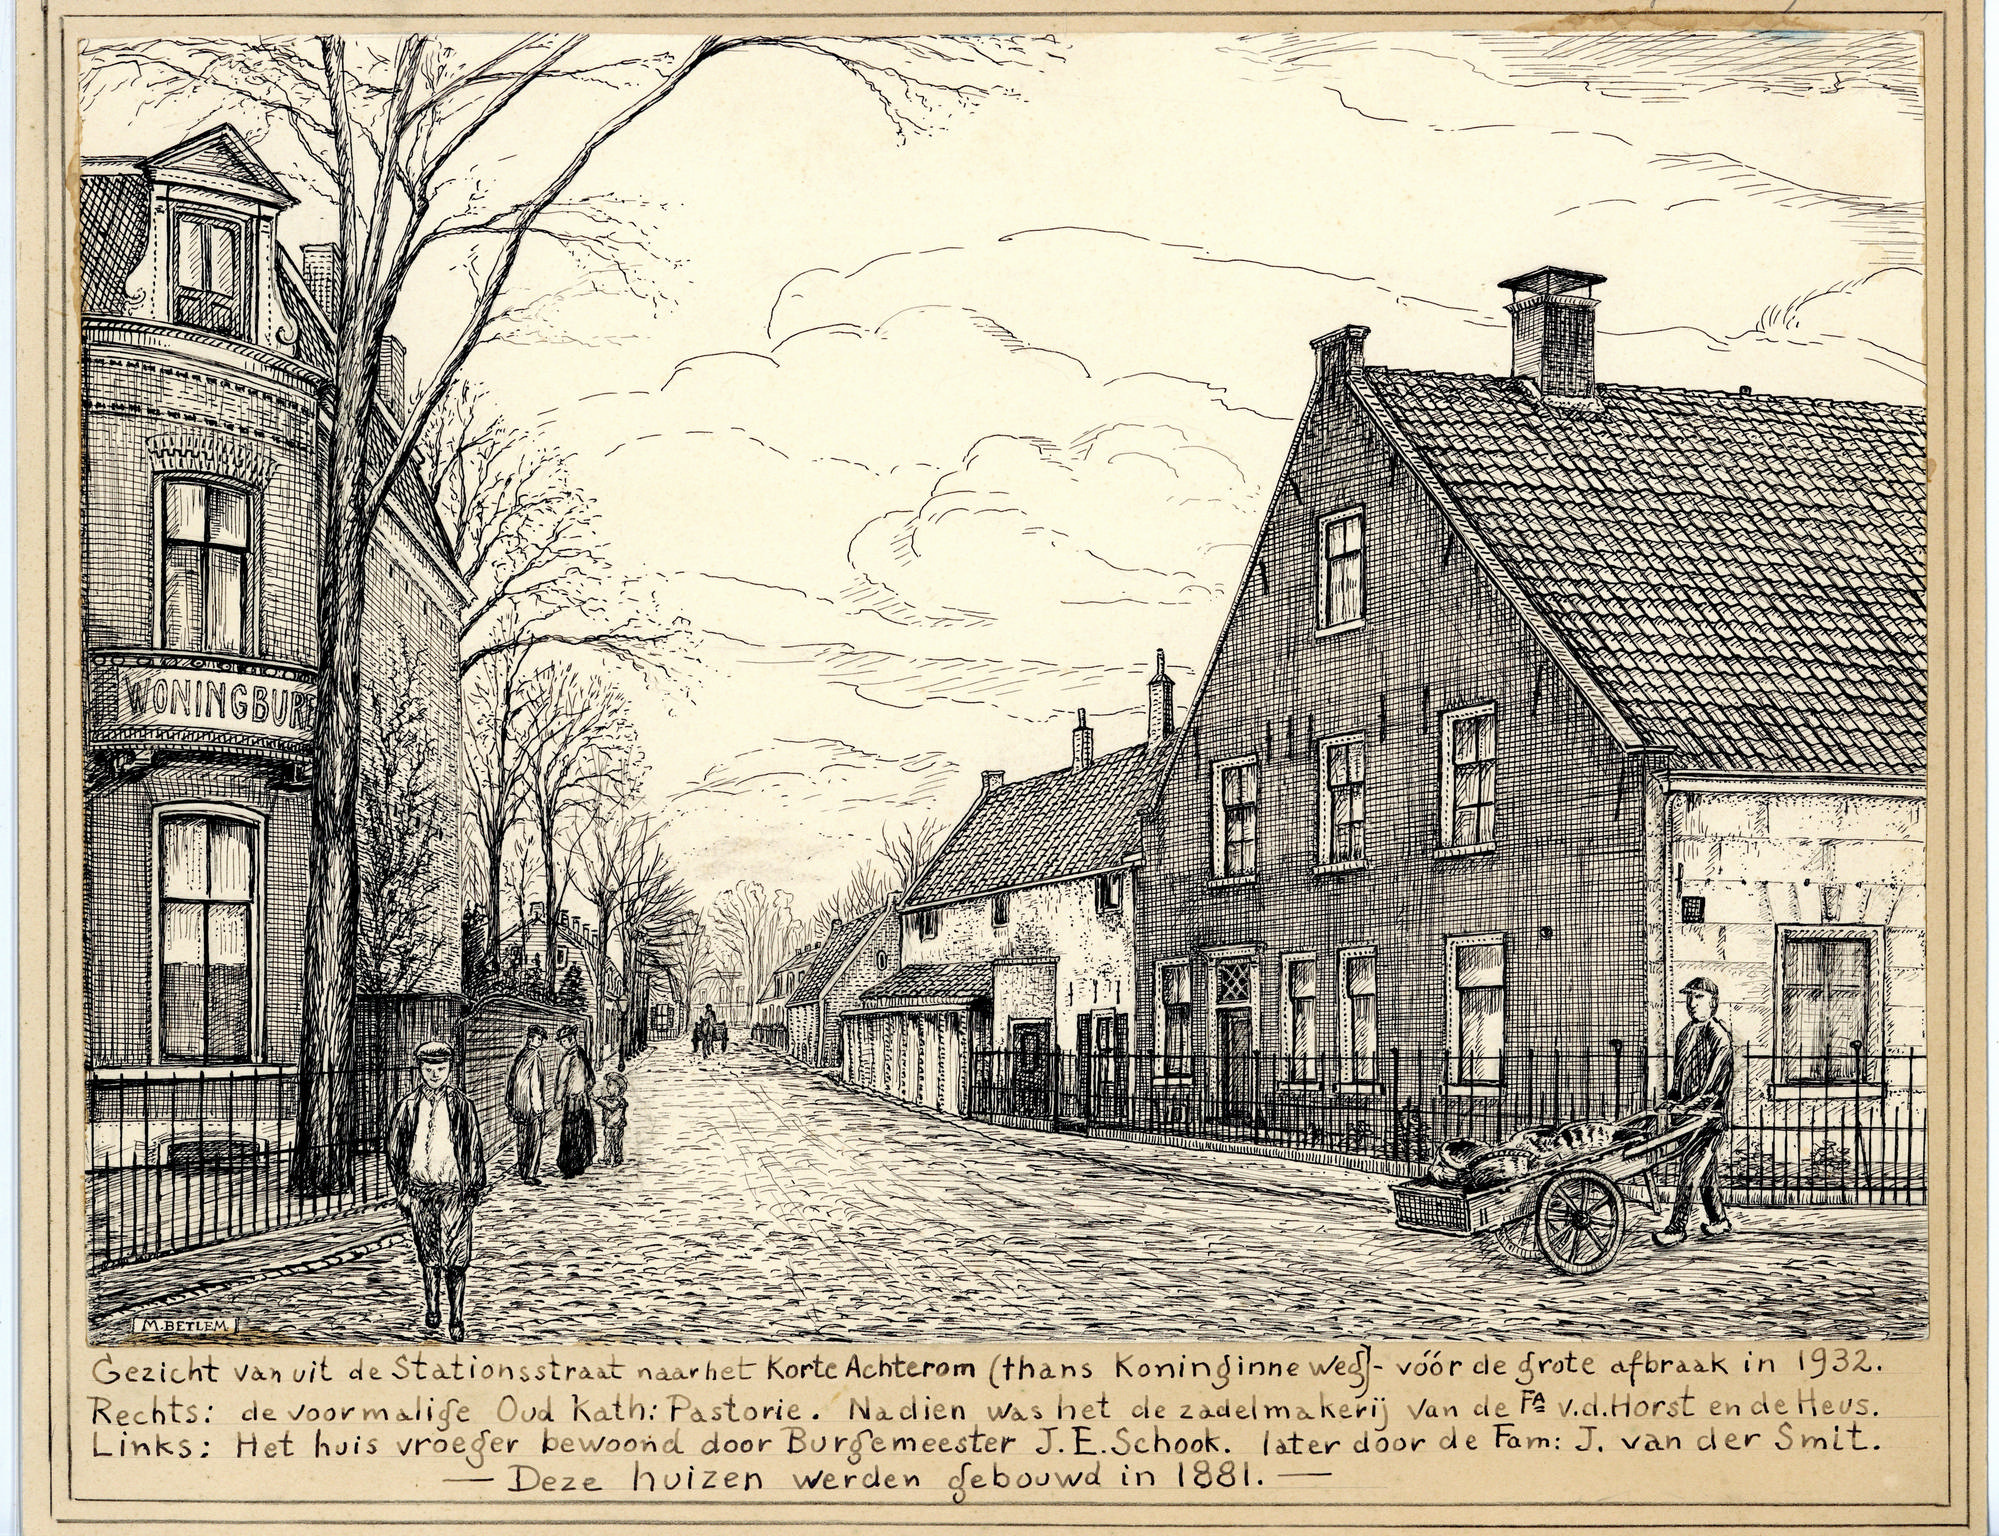 WONINGBURE
M. BETLEM.
Gezicht vanuit de Stationsstraat naar het Korte Achterom (thans Koninginne weg)- vóór de grote afbraak in 1932.
Rechts: de voormalige Oud Kath: Pastorie. Nadien was het de zadelmakerij van de FA v.d. Horst en de Heus.
Links: Het huis vroeger bewoond door Burgemeester J.E. Schook. later door de Fam: J. van der Smit.
— Deze huizen werden gebouwd in 1881. —